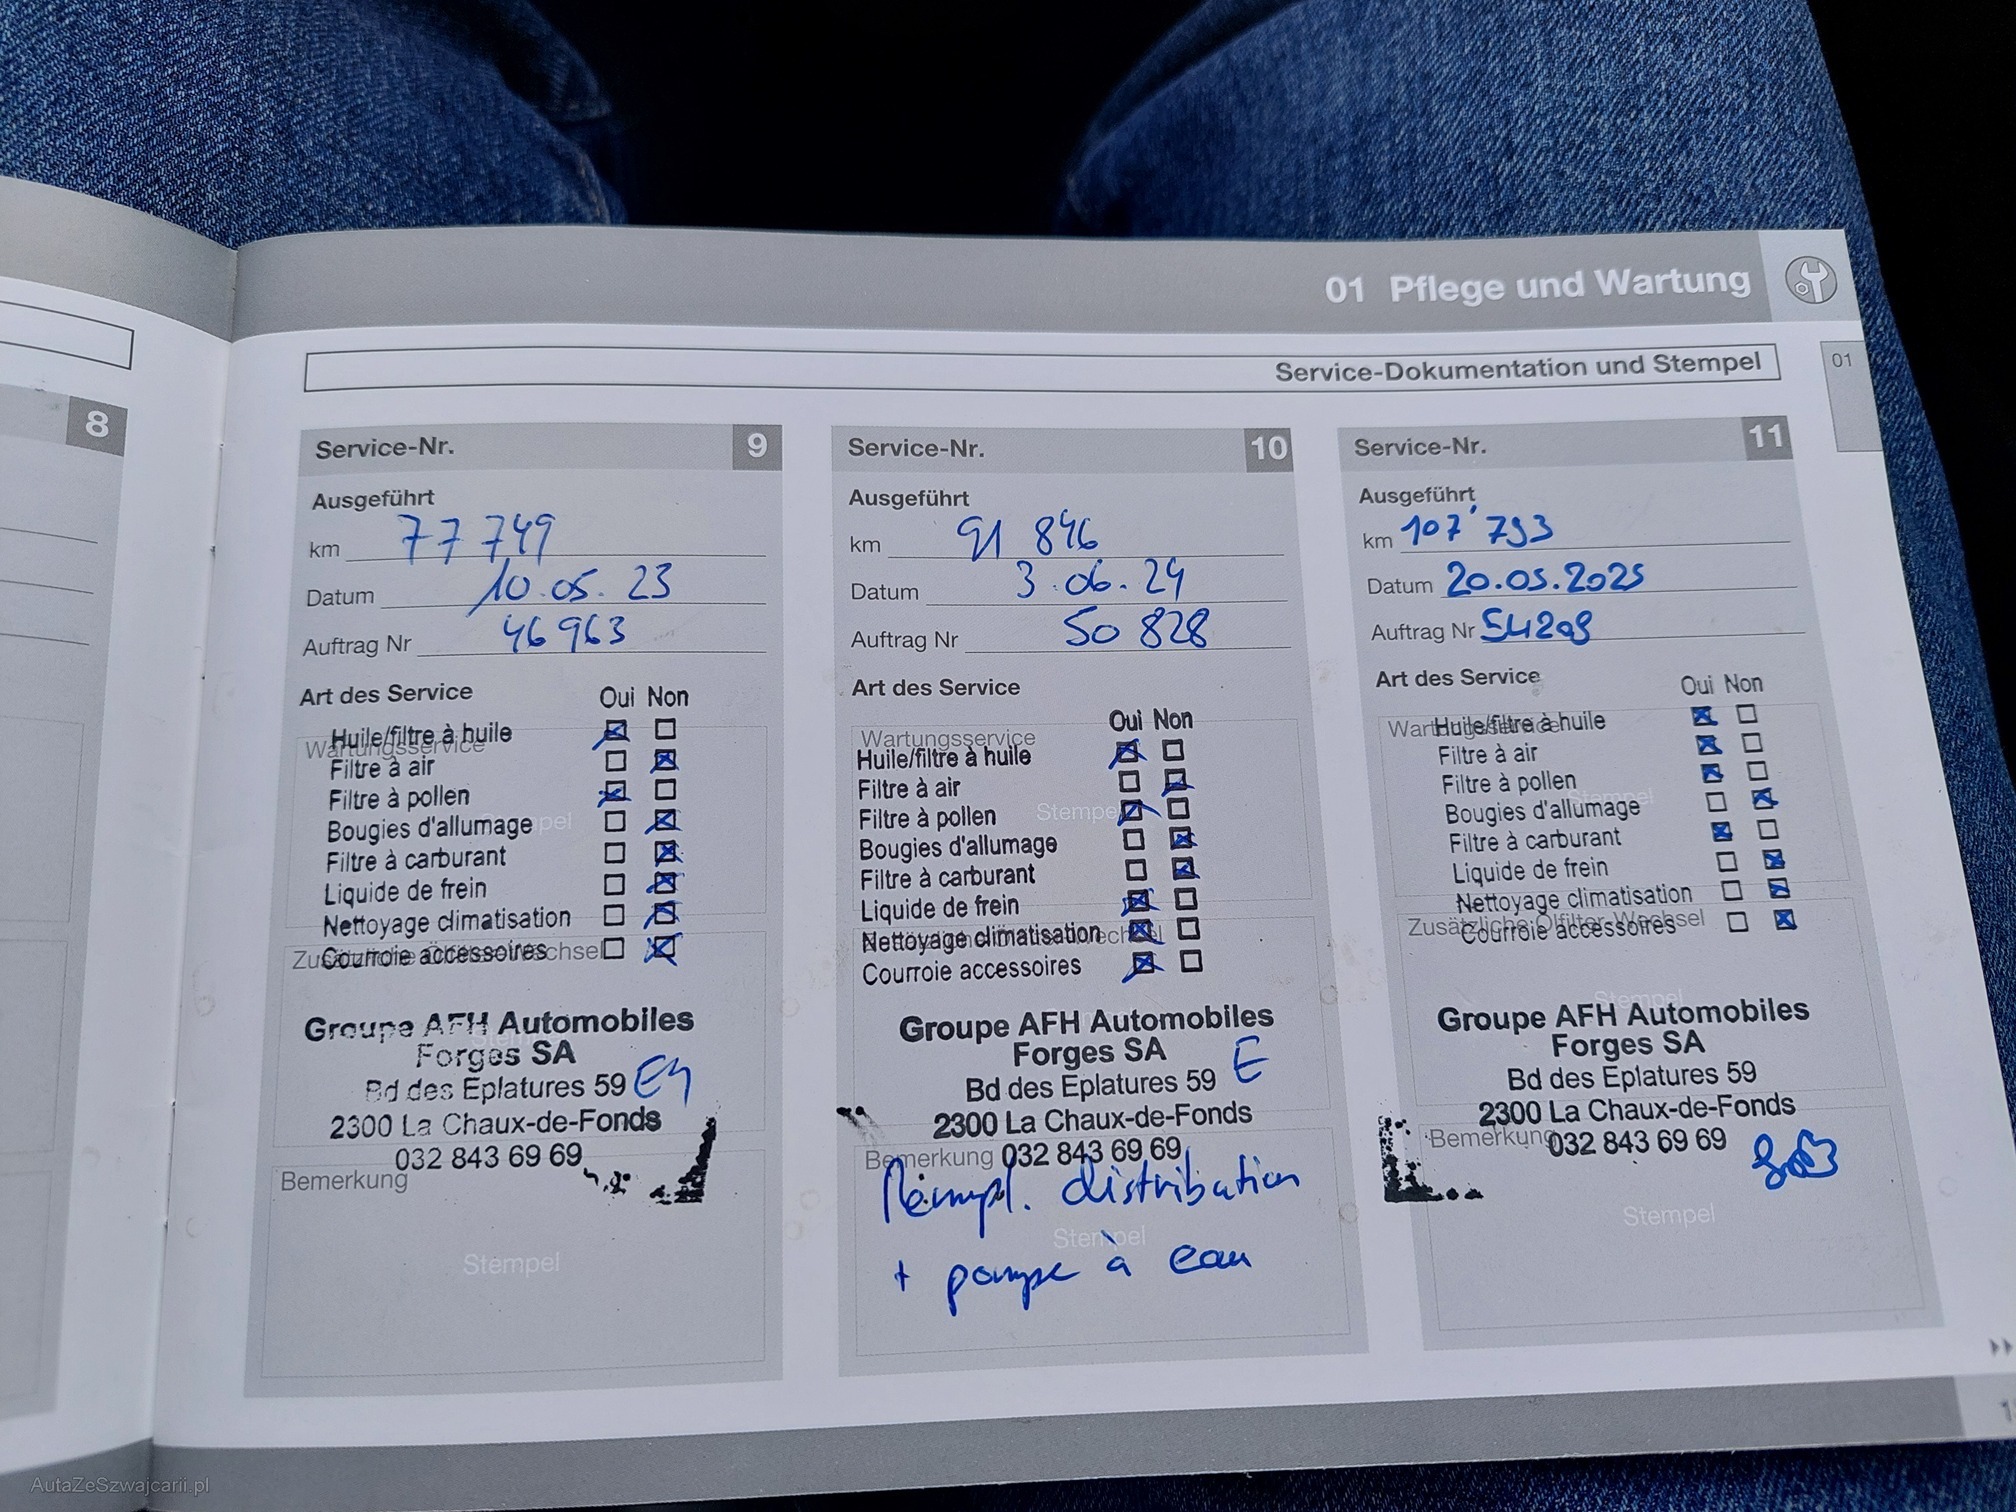 01 Pflege und Wartung
Service-Dokumentation und Stempel
01
8
Service-Nr. 9
Ausgeführt
km 77 749
Datum 10.05.23
Auftrag Nr 46 963
Art des Service
Oui Non
Wartungsservice
Huile/filtre à huile
Filtre à air
Filtre à pollen
Bougies d'allumage
Filtre à carburant
Liquide de frein
Nettoyage climatisation
Courroie accessoires
Groupe AFH Automobiles
Forges SA
Bd des Eplatures 59
2300 La Chaux-de-Fonds
032 843 69 69
Bemerkung
Stempel
Service-Nr. 10
Ausgeführt
km 91 846
Datum 3.06.24
Auftrag Nr 50 828
Art des Service
Oui Non
Wartungsservice
Huile/filtre à huile
Filtre à air
Filtre à pollen
Stempel
Bougies d'allumage
Filtre à carburant
Liquide de frein
Nettoyage climatisation
Courroie accessoires
Groupe AFH Automobiles
Forges SA
Bd des Eplatures 59 E
2300 La Chaux-de-Fonds
Bemerkung 032 843 69 69
Rempl. distribution
Stempel
+ pompe à eau
Service-Nr. 11
Ausgeführt
km 107'793
Datum 20.05.2025
Auftrag Nr 54209
Art des Service
Oui Non
Huile/filtre à huile
Filtre à air
Filtre à pollen
Stempel
Bougies d'allumage
Filtre à carburant
Liquide de frein
Nettoyage climatisation
Zusätzliche Ölfilter-Wechsel
Courroie accessoires
Stempel
Groupe AFH Automobiles
Forges SA
Bd des Eplatures 59
2300 La Chaux-de-Fonds
Bemerkung 032 843 69 69
Stempel
AutaZeSzwajcarii.pl